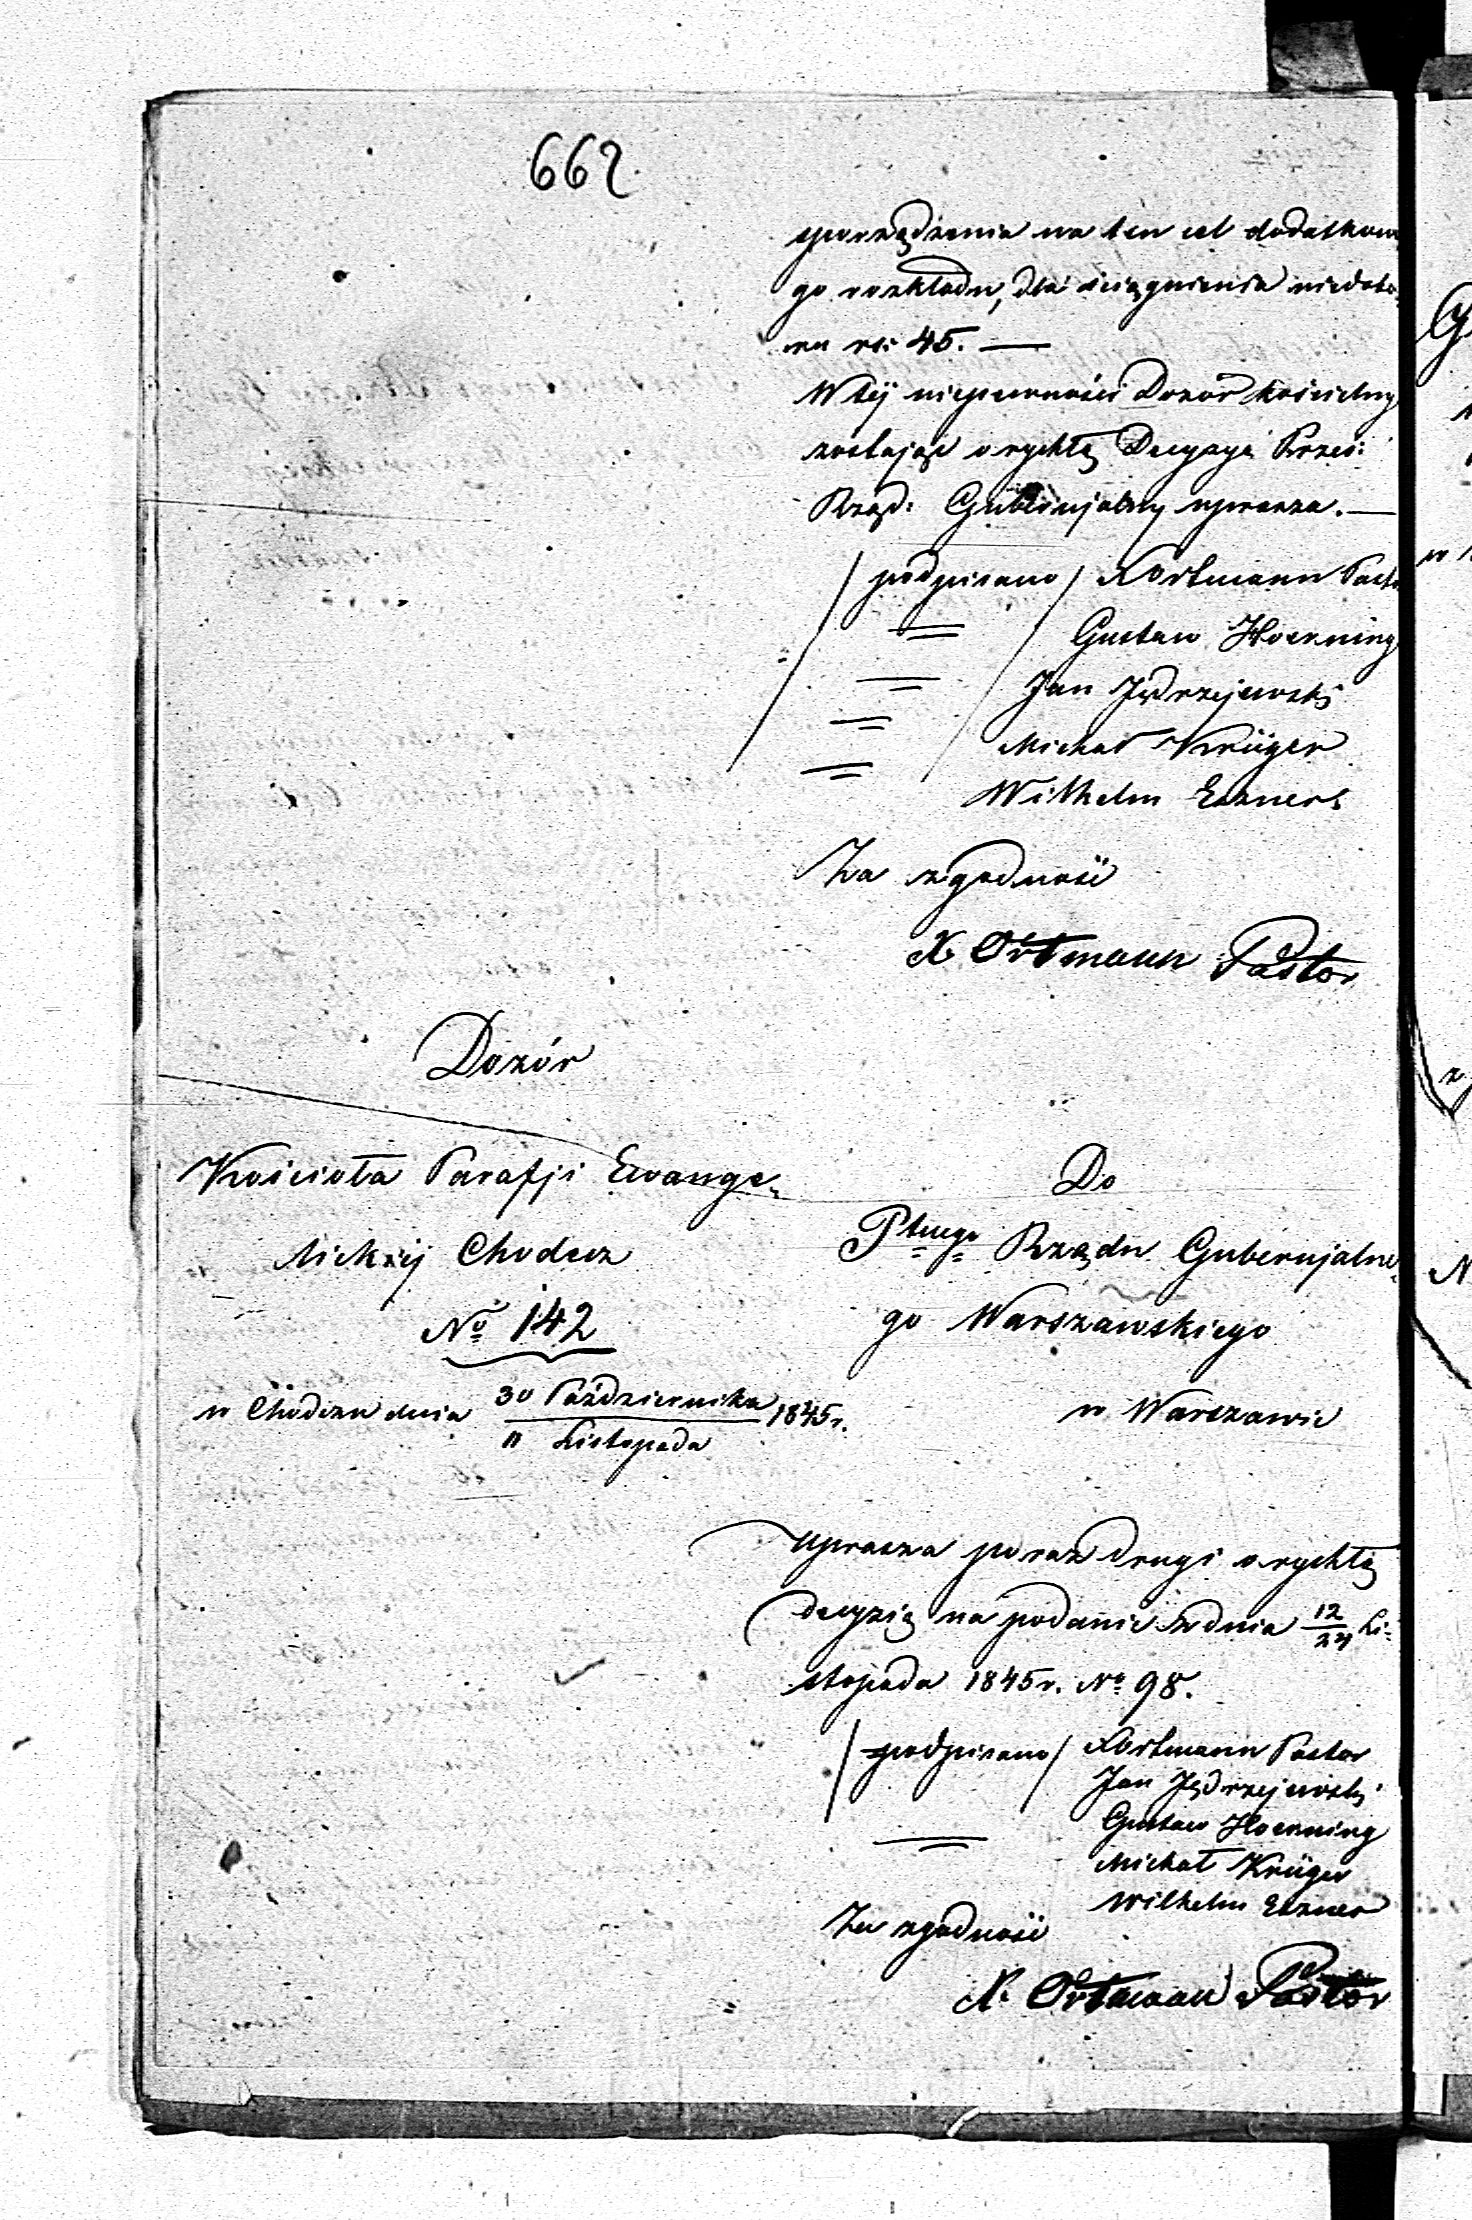 662
sporządzenia na ten cel dodatkowe
go rozkładu, dla ściągnienia niedobo
ru rs: 45. —
W téj niepewności Dozór kościelny
zostając o rychłą Decyzyą Prześ:
Rząd: Gubernjalny uprasza. —
/podpisano/ X Ortmann Pastor
= Gustaw Hoerning
= Jan Jędrzejewski
= Michał Krüger
= Wilhelm Exner
Za zgodność
X. Ortmann Pastor
Dozór
Kościoła Parafji Ewange-
lickiéj Chodecz
No 142
w Chodczu dnia 30 Października / 11 Listopada 1845 r.
Do
Rządu Gubernjalne-
go Warszawskiego
w Warszawie
Uprasza po raz drugi o rychłą
decyzią na podanie z dnia 12/24 Li-
stopada 1845 r. No 98.
/podpisano/ X Ortmann Pastor
Jan Jędrzejewski
= Gustaw Hoerning
Michał Krüger
Wilhelm Exner
Za zgodność
X. Ortmann Pastor